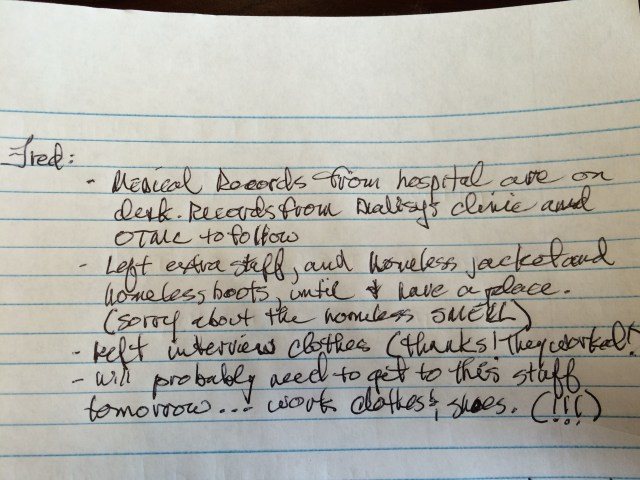 Fred:
- Medical Records from hospital are on
desk. Records from Dialisys clinic and
OTMC to follow
- Left extra stuff, and homeless jacket and
homeless boots, until I have a place.
(sorry about the homeless SMELL)
- Left interview clothes (thanks! They worked!)
- Will probably need to get to this stuff
tomorrow... work clothes &, shoes. (!!!)